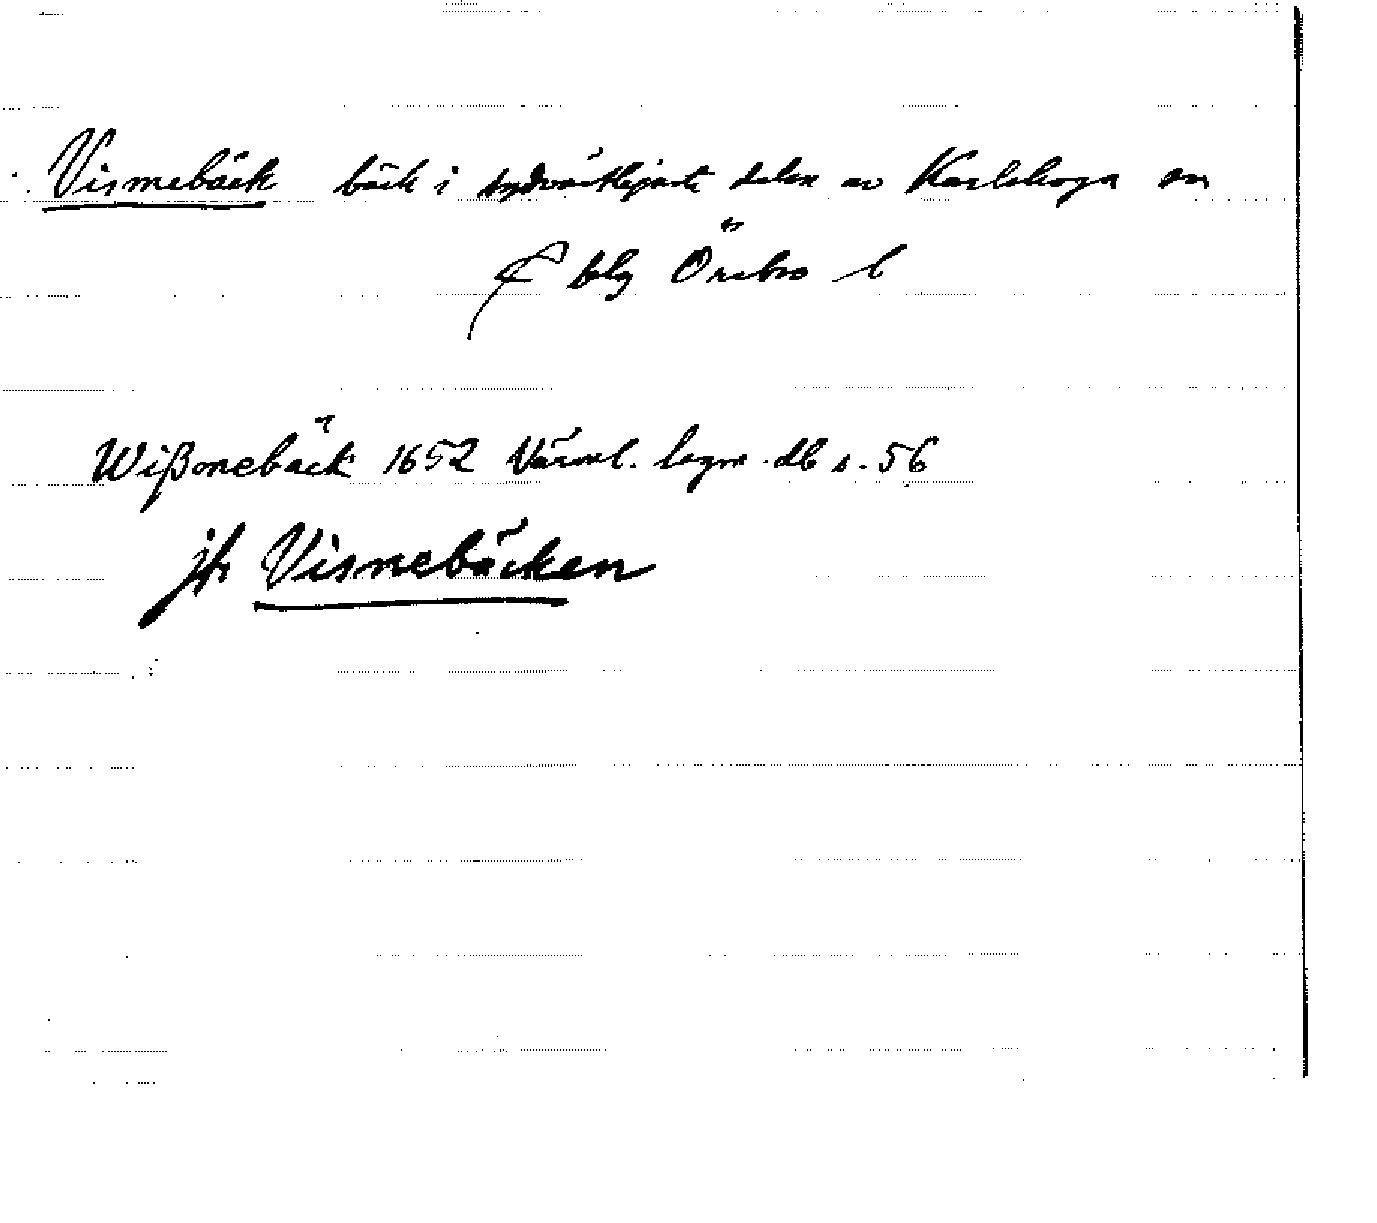 Vismebäck bäck i sydvästligaste delen av Karlskoga sn
blg Örebro l
Wißonebäck 1652 Värml. lagm. db s. 56
jfr Visnebäcken